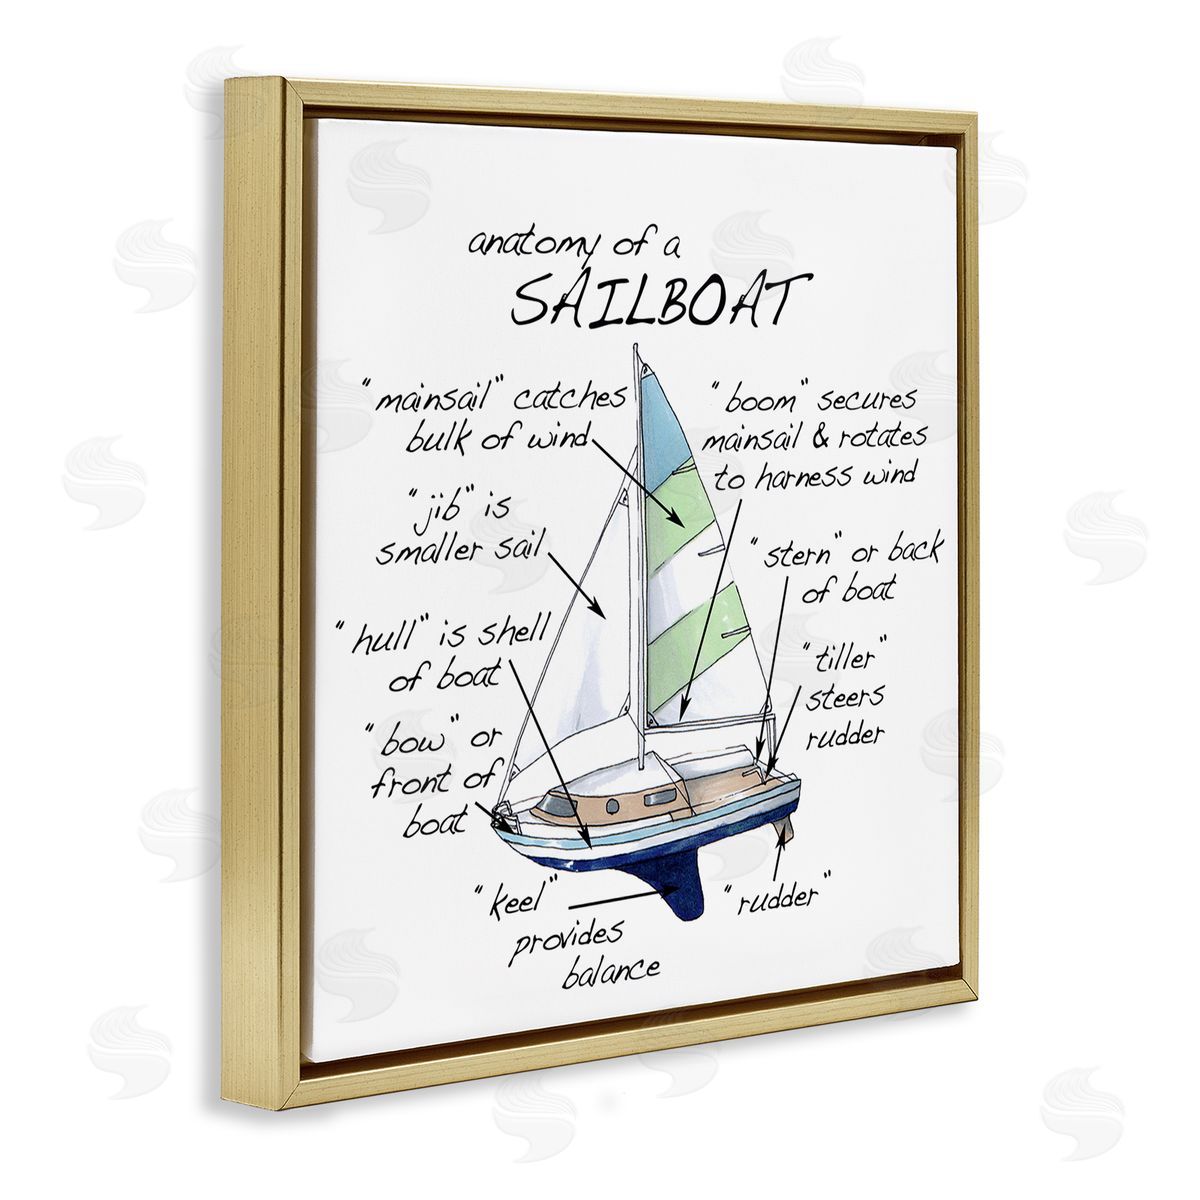 anatomy of a
SAILBOAT
"mainsail" catches
bulk of wind
"boom" secures
mainsail & rotates
to harness wind
"jib" is
smaller sail
"stern" or back
of boat
"hull" is shell
of boat
"tiller"
steers
rudder
"bow" or
front of
boat
"keel"
provides
balance
"rudder"